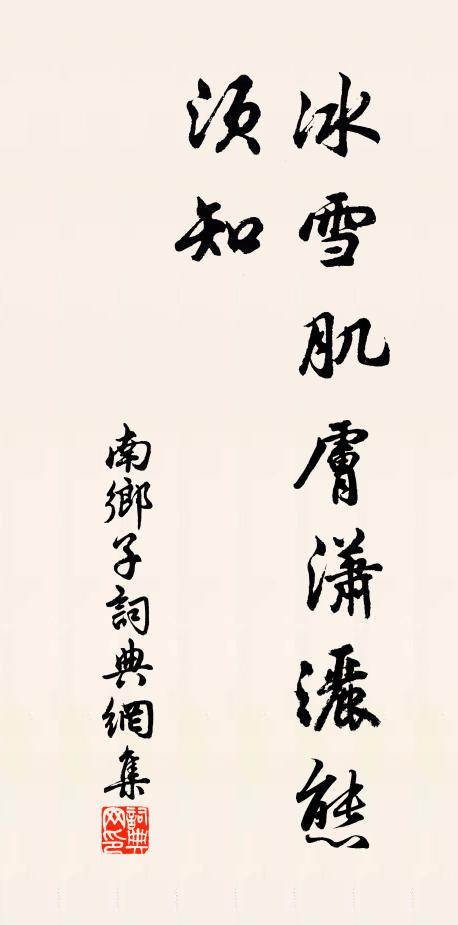 冰雪肌膚瀟灑態
須知
南鄉子詞典網集
詞典
网印